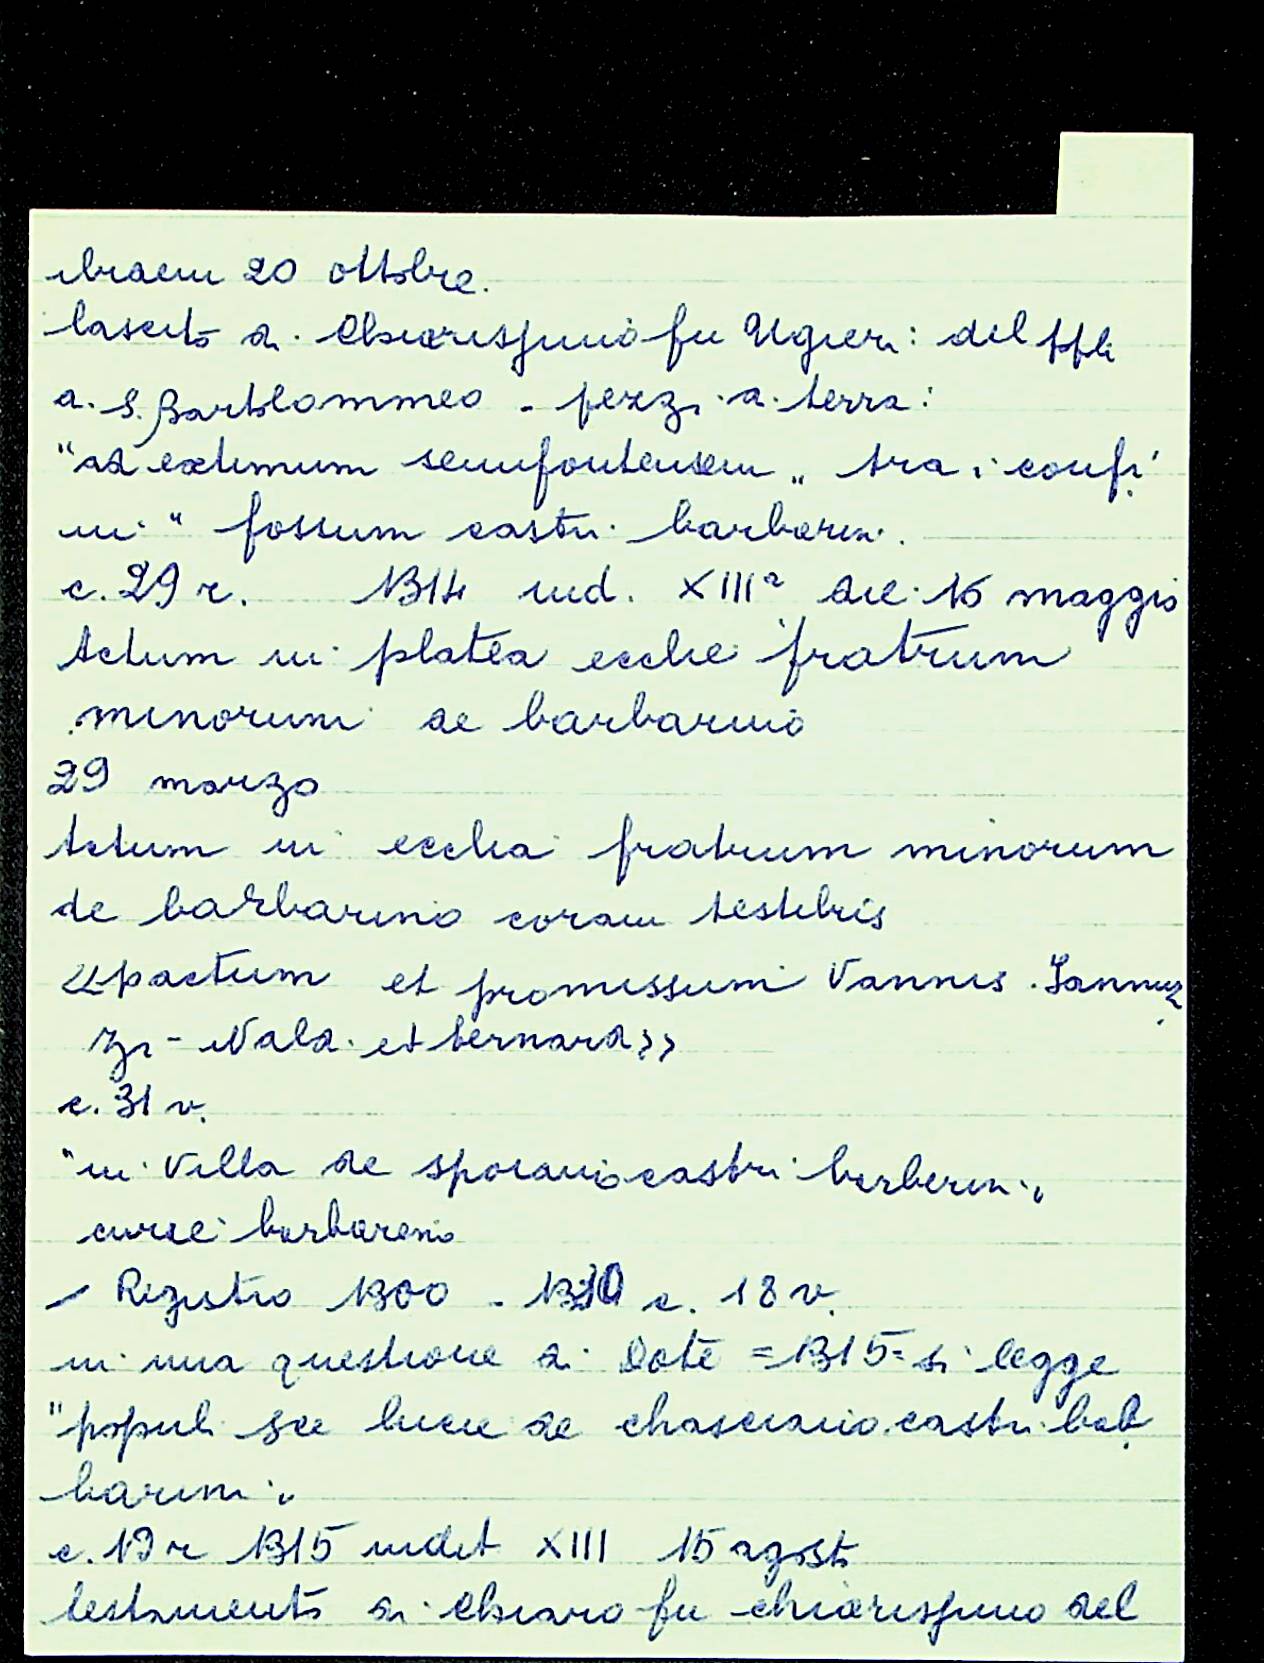 ibidem 20 ottobre.
lascito di Chiarispinio fu Ugieri: del ppli
di S. Bartolommeo - pezzi di terra:
"ad extimum semifontensem„ tra i confi
ni " fossum castri barbarini.
c. 29 r. 1314 ind. XIIIª die 16 maggio
Actum in platea ecclie fratrum
minorum de barbarino
29 marzo
Actum in ecclia fratrum minorum
de barbarino coram testibus
«pactum et promissum Vannis Iannuz
zi - Nald. et bernard»
c. 31 v.
"in Villa de spoiano castri berberini„
curie barbareno
- Registro 1300 - 1310 c. 18 v.
in una questione di Dote =1315= si legge
"populi sce lucie de chasciano castri bab
barini„
c. 19 r 1315 indit XIII 15 agosto
testamento di Chiaro fu chiarispino del